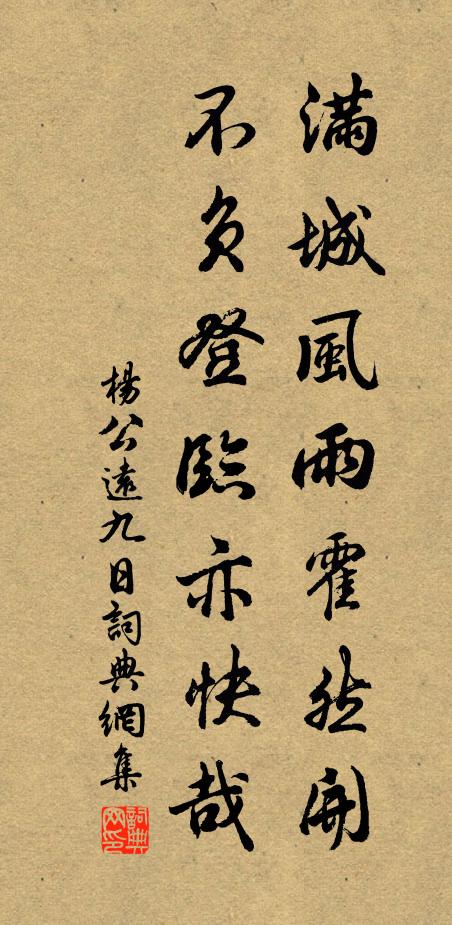 滿城風雨霍然開
不負登臨亦快哉
楊公遠九日詞典網集
詞典
网印